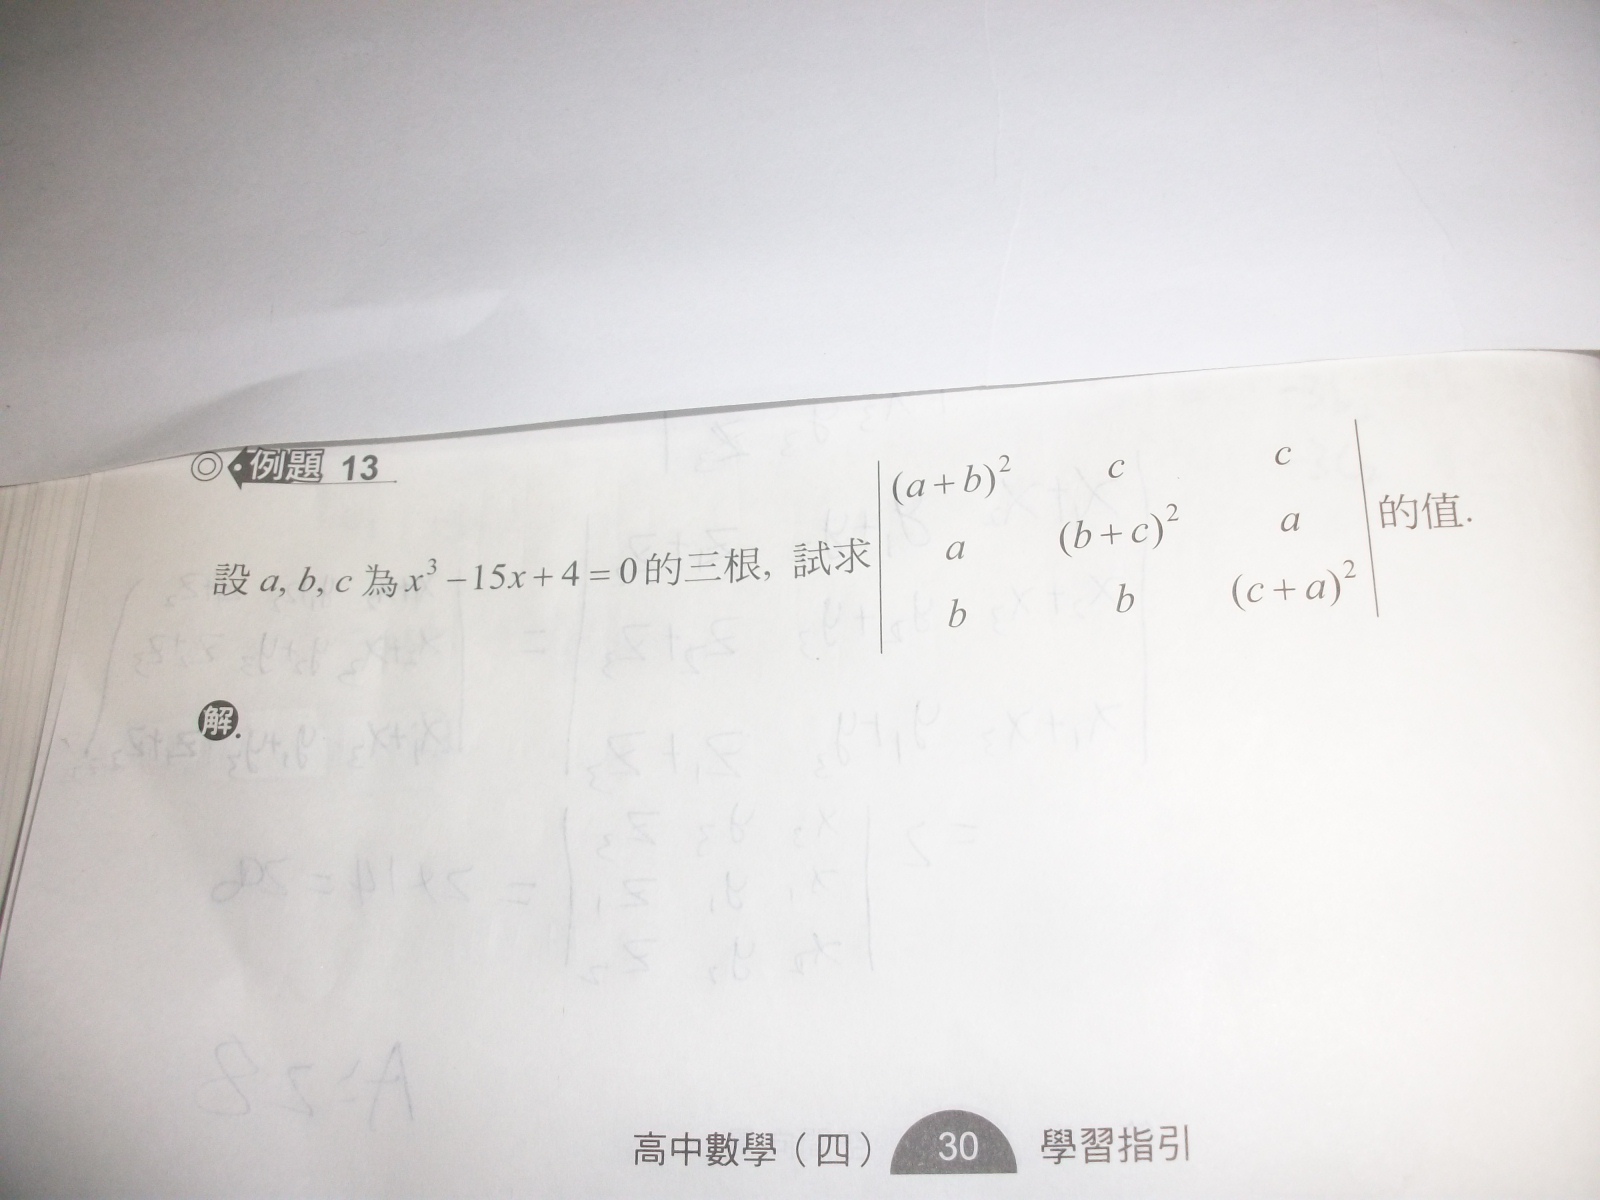 例題 13
設 a, b, c 為 x³ − 15x + 4 = 0 的三根, 試求 | (a + b)² c c | 的值.
| a (b + c)² a |
| b b (c + a)² |
解.
高中數學（四） 30 學習指引